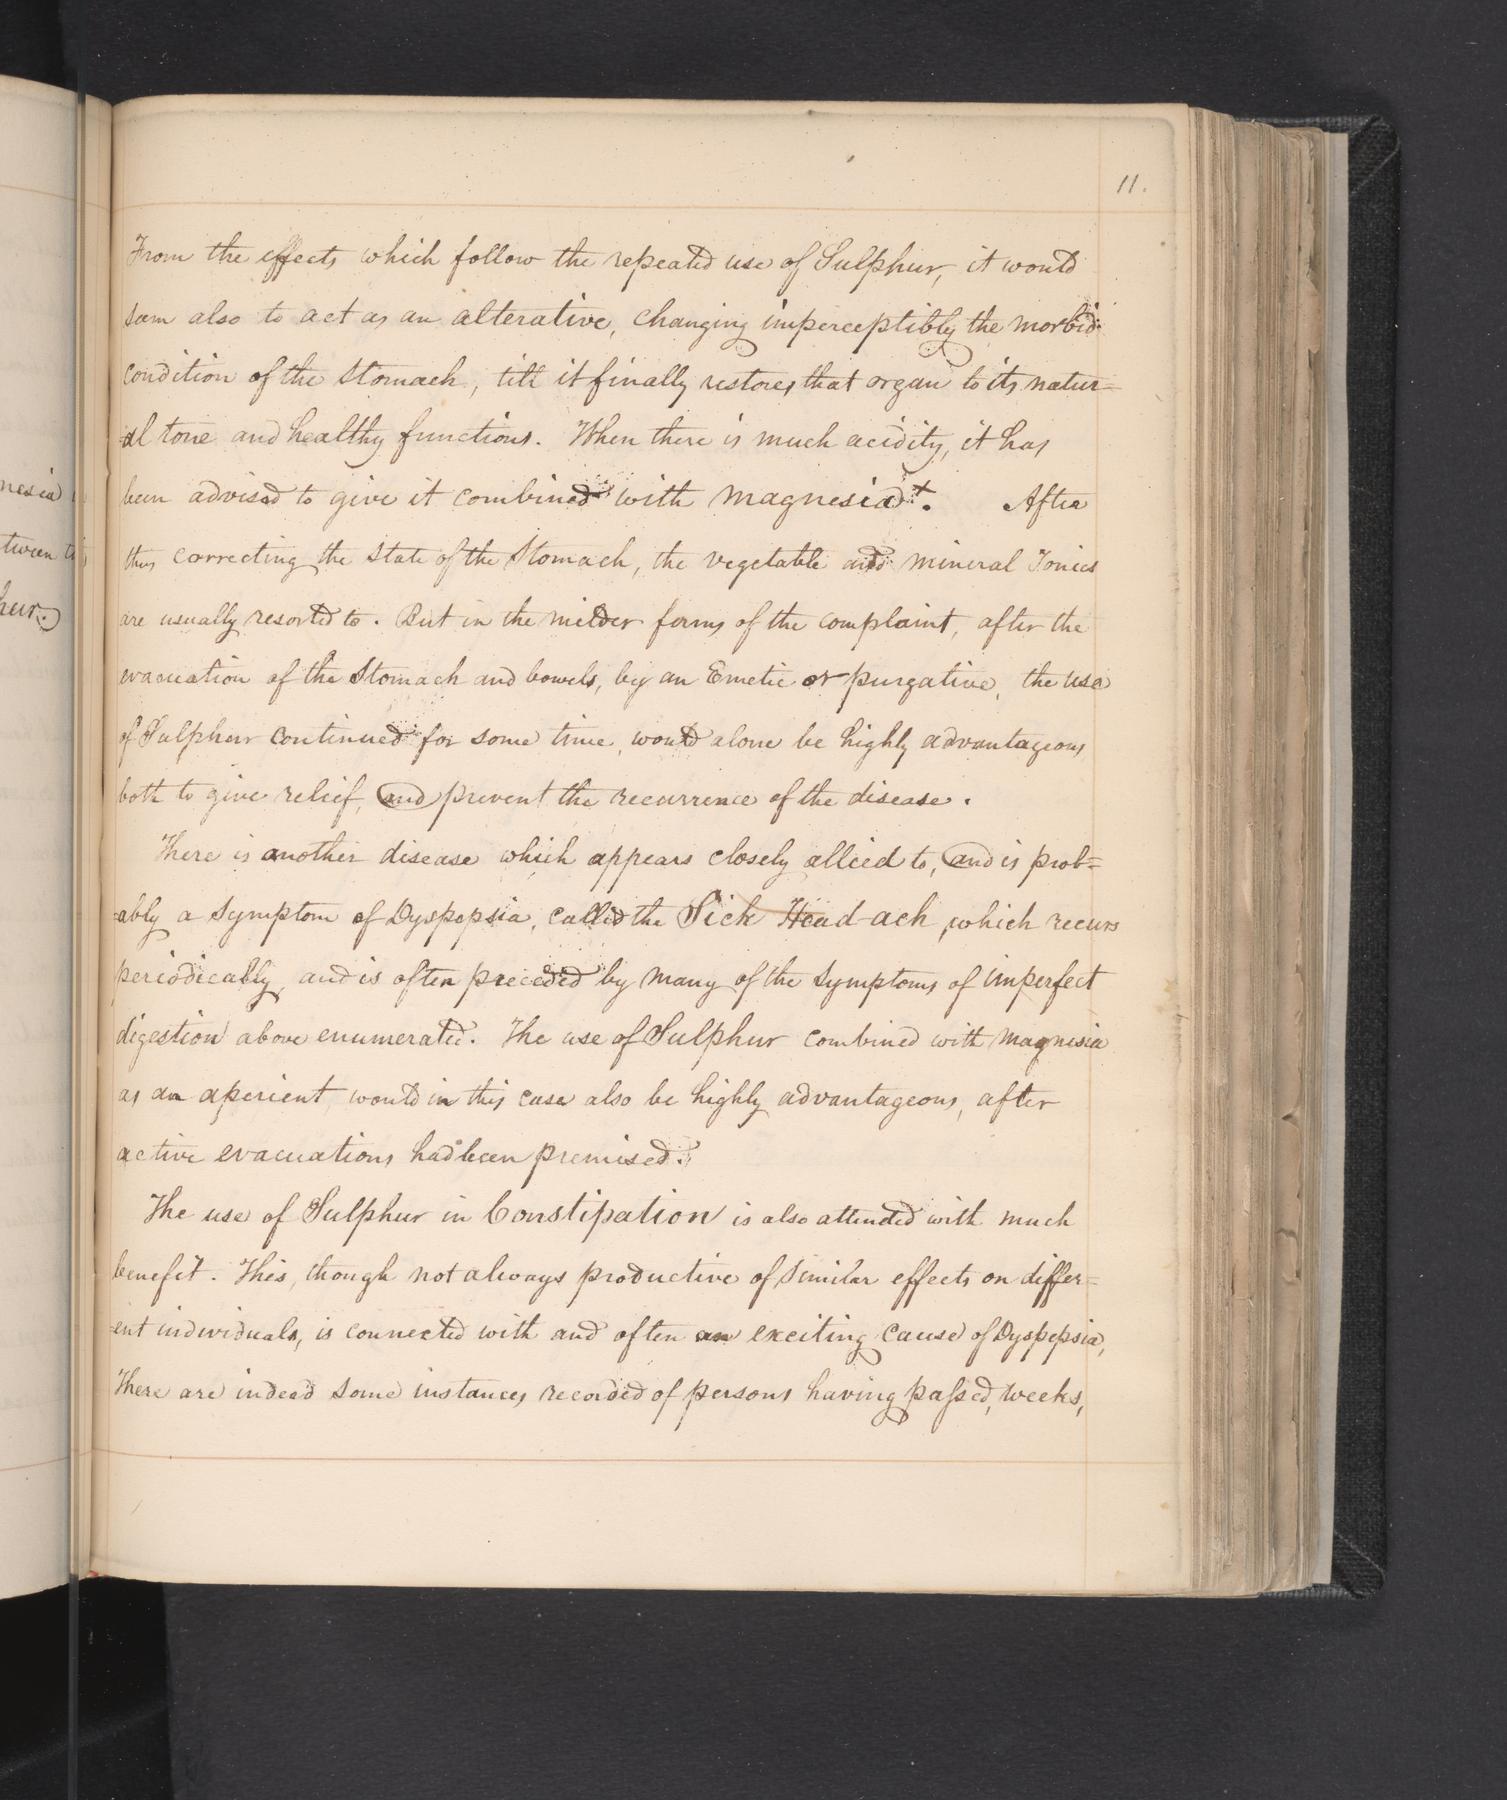 nesia
tween th
hur.)
11.
From the effects which follow the repeated use of Sulphur, it would
seem also to act as an alterative, changing imperceptibly the morbid
condition of the Stomach, till it finally restores that organ to its natur=
=al tone and healthy functions. When there is much acidity, it has
been advised to give it combined with magnesia +. After
thus correcting the State of the Stomach, the vegetable and mineral Tonics
are usually resorted to. But in the milder forms of the complaint, after the
evacuation of the Stomach and bowels, by an Emetic or purgative, the use
of Sulphur continued for some time, would alone be highly advantageous
both to give relief, and prevent the recurrence of the disease.
There is another disease which appears closely allied to, and is prob=
=ably a Symptom of Dyspepsia, called the Sick Head-ach, which recurs
periodically, and is often preceded by many of the Symptoms of imperfect
digestion above enumerated. The use of Sulphur combined with magnesia
as an aperient would in this case also be highly advantageous, after
active evacuations had been premised.
The use of Sulphur in Constipation is also attended with much
benefit. This, though not always productive of similar effects on differ=
=ent individuals, is connected with and often an exciting cause of Dyspepsia,
There are indeed some instances recorded of persons having paſsed, weeks,